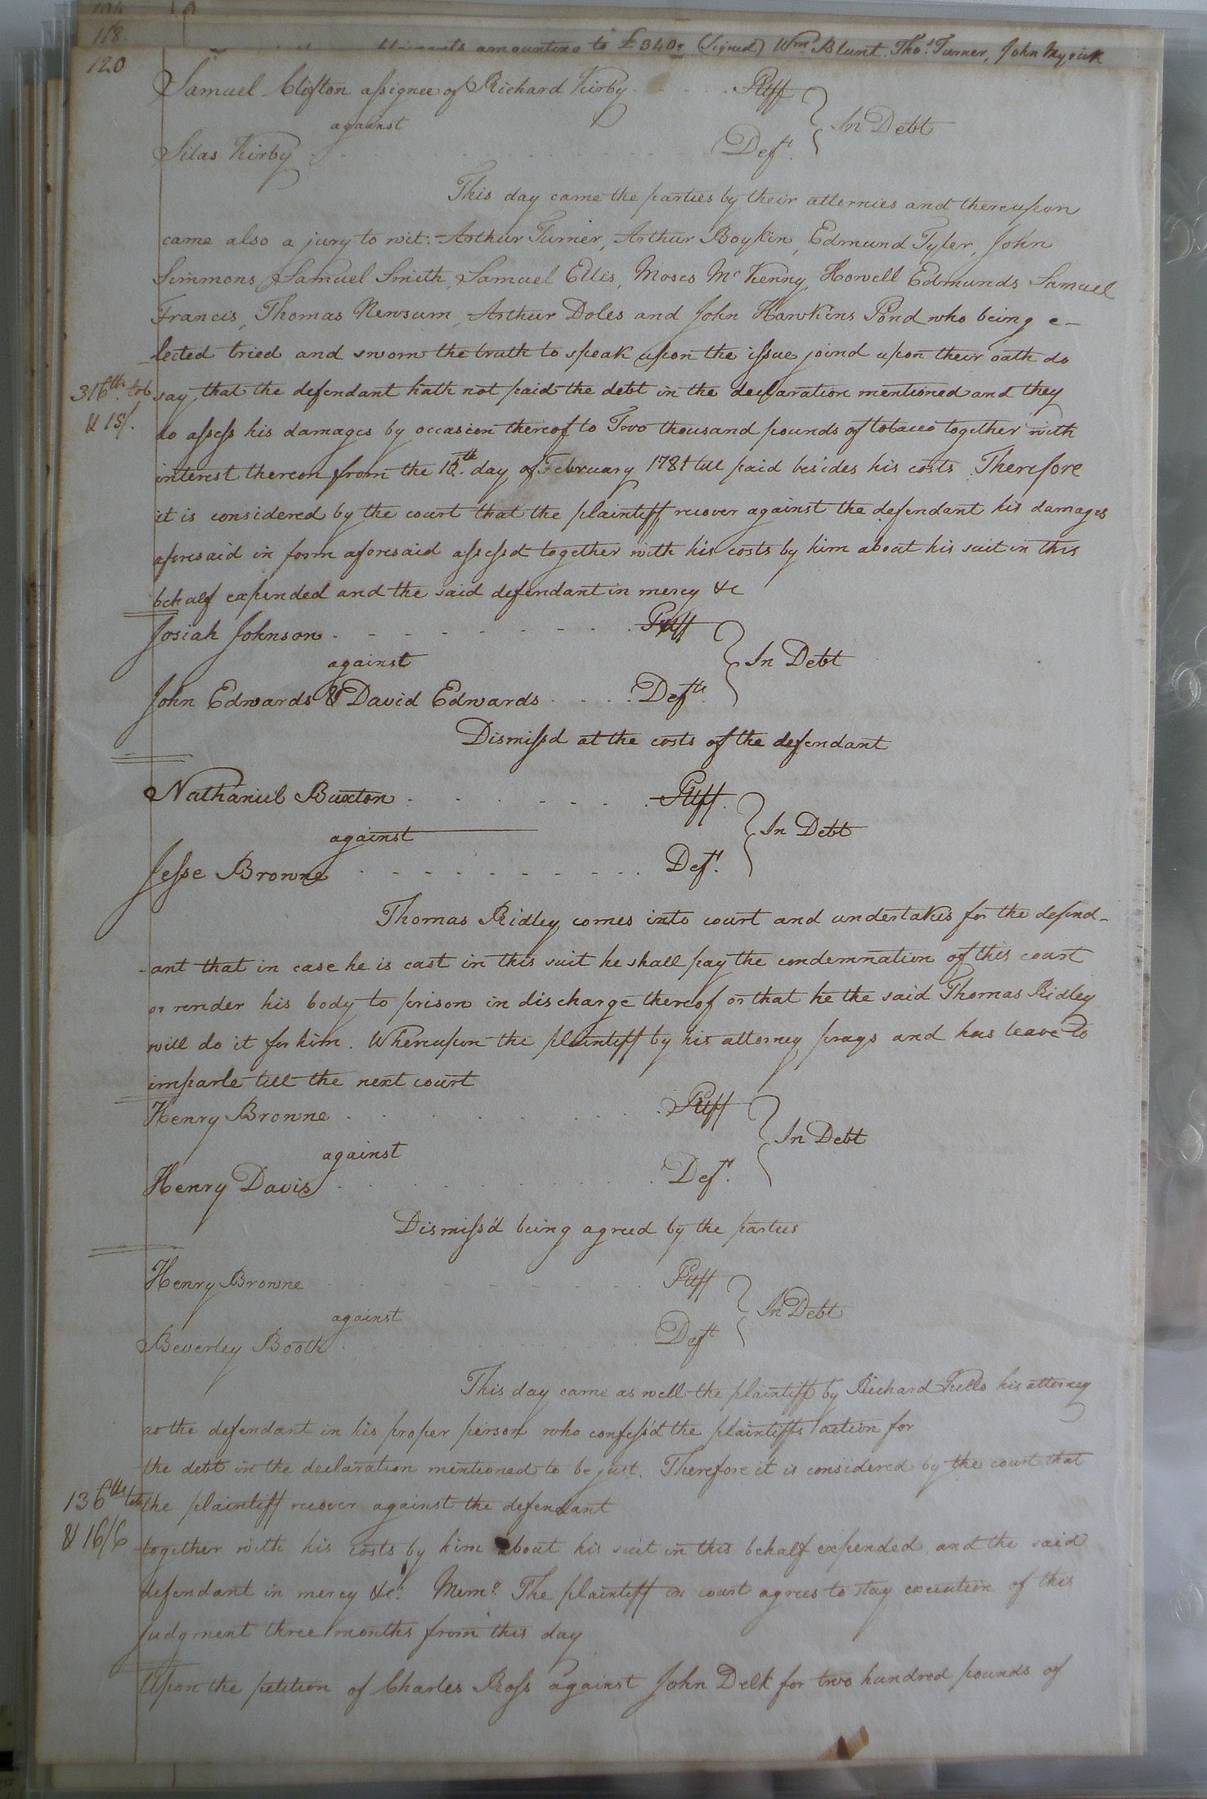 118
amounting to £340. (Signed) Wm. Blunt. Thos. Turner, John Myrick
120
Samuel Clifton assignee of Richard Kirby Pltff
against In Debt
Silas Kirby Deft.
This day came the parties by their attornies and thereupon
came also a jury to wit. Arthur Turner, Arthur Boykin, Edmund Tyler, John
Simmons, Samuel Smith, Samuel Ellis, Moses McKenny, Howell Edmunds Samuel
Francis, Thomas Newsum, Arthur Doles and John Hawkins Pond who being e-
lected tried and sworn the truth to speak upon the issue joind upon their oath do
316th. tob say, that the defendant hath not paid the debt in the declaration mentioned and they
& 15/. do assess his damages by occasion thereof to Two thousand pounds of tobacco together with
interest thereon from the 10th. day of February 1781 till paid besides his costs. Therefore
it is considered by the court that the plaintiff recover against the defendant his damages
aforesaid in form aforesaid assess'd together with his costs by him about his suit in this
behalf expended and the said defendant in mercy &c
Josiah Johnson Pltff
against In Debt
John Edwards & David Edwards Defts.
Dismiss'd at the costs of the defendant
Nathaniel Buxton Pltff.
against In Debt
Jesse Browne Deft.
Thomas Ridley comes into court and undertakes for the defend-
-ant that in case he is cast in this suit he shall pay the condemnation of this court
or render his body to prison in discharge thereof or that he the said Thomas Ridley
will do it for him. Whereupon the plaintiff by his attorney prays and has leave to
imparle till the next court
Henry Browne Pltff
against In Debt
Henry Davis Deft.
Dismiss'd being agreed by the parties
Henry Browne Pltff
against In Debt
Beverley Booth Deft
This day came as well the plaintiff by Richard his attorney
as the defendant in his proper person who confess'd the plaintiffs action for
the debt in the declaration mentioned to be just. Therefore it is considered by the court that
136th tob the plaintiff recover against the defendant
& 16/6 together with his costs by him about his suit in this behalf expended, and the said
defendant in mercy &c. Memo. The plaintiff in court agrees to stay execution of this
judgment three months from this day
Upon the petition of Charles Ross against John Delk for two hundred pounds of